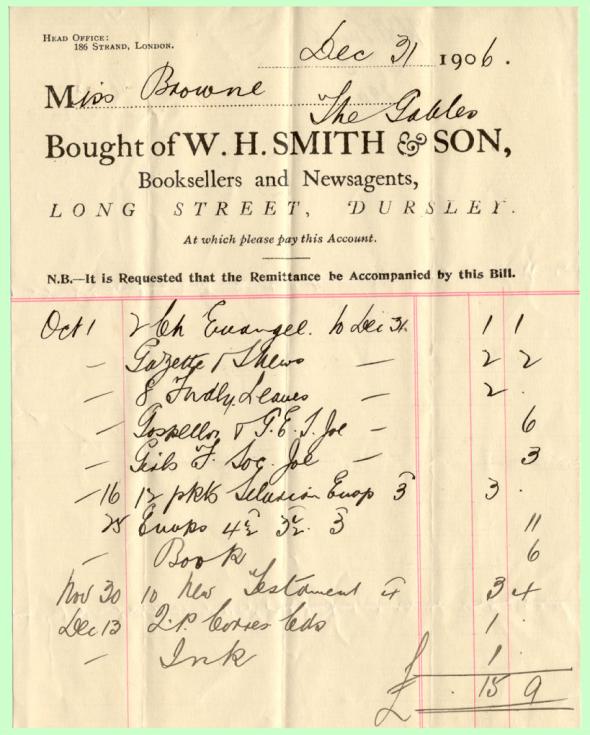 HEAD OFFICE:
186 STRAND, LONDON.
Dec 31 1906.
Miss Browne
The Gables
Bought of W. H. SMITH & SON,
Booksellers and Newsagents,
LONG STREET, DURSLEY.
At which please pay this Account.
N.B.—It is Requested that the Remittance be Accompanied by this Bill.
Oct 1 2 Ch Evangel. to Dec 31 1 1
— Gazette & News — 2 2
— 8 Fndly Leaves — 2 .
— Gospeller & — 6
— Girls F. Soc. — 3
— 16 12 pkts Envop 3 3 .
25 Envops 4½ 3½ 3 11
— Book 6
Nov 30 10 New Testament 4 3 4
Dec 13 2 P. Corres Cds 1 .
— Ink 1 .
£ . 15 9